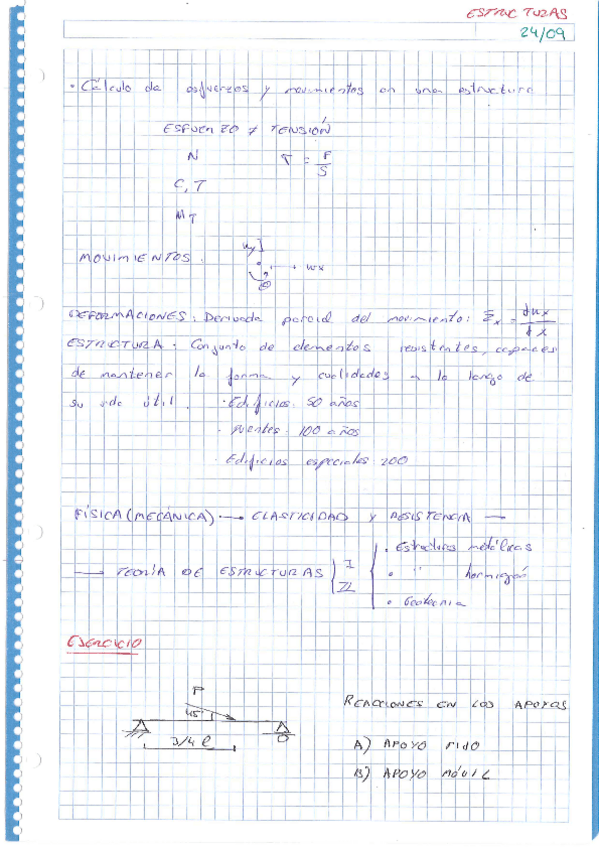 ESTRUCTURAS
24/09
· Cálculo de esfuerzos y movimientos en una estructura
ESFUERZO ≠ TENSIÓN
N σ = F/S
C, T
MT
MOVIMIENTOS.
uy
ux
θ
DEFORMACIONES: Derivada parcial del movimiento: Ɛx = dux/dx
ESTRUCTURA: Conjunto de elementos resistentes, capaces
de mantener la forma y cualidades a lo largo de
su vida útil. · Edificios: 50 años
· Puentes: 100 años
· Edificios especiales: 200
FÍSICA (MECÁNICA) → ELASTICIDAD Y RESISTENCIA —
→ TEORÍA DE ESTRUCTURAS { I II
· Estructuras metálicas
· " hormigón
· Geotecnia
EJERCICIO
P
45°
3/4 l
REACCIONES EN LOS APOYOS
A) APOYO FIJO
B) APOYO MÓVIL